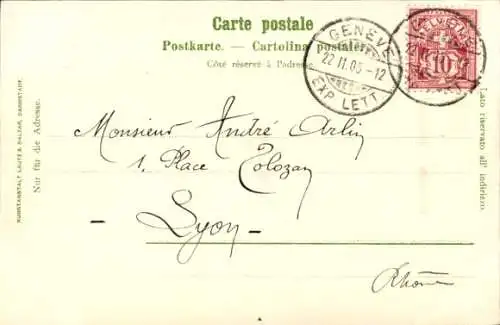 Carte postale
Postkarte. — Cartolina postale.
Côté réservé à l'adresse.
GENÈVE
22 II. 05 - 12
EXP. LETT
HELVETIA
10
Monsieur André Arlin
1, Place Tolozan
- Lyon -
Rhône
KUNSTANSTALT LAUTZ & BALZAR, DARMSTADT.
Nur für die Adresse.
Lato riservato all' indirizzo.